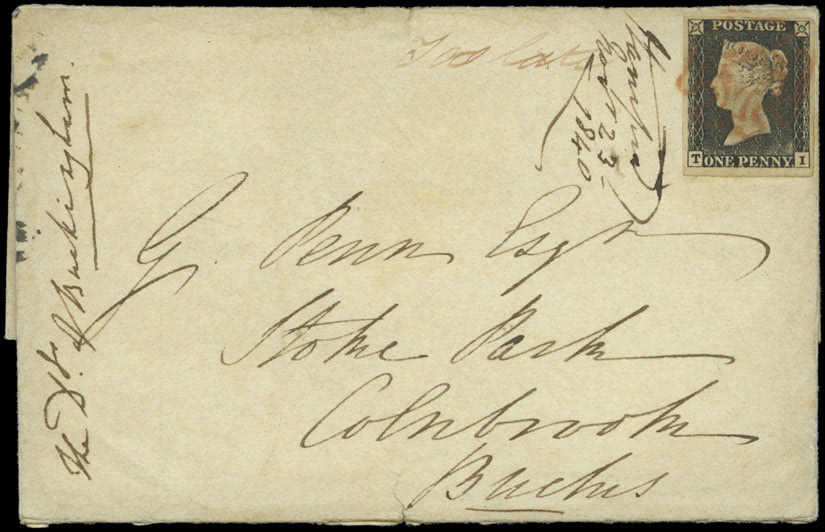 POSTAGE
T ONE PENNY I
Too late
23
1840
The Ds. of Buckingham.
G. Penn Esqr
Stoke Park
Colnbrook
Bucks